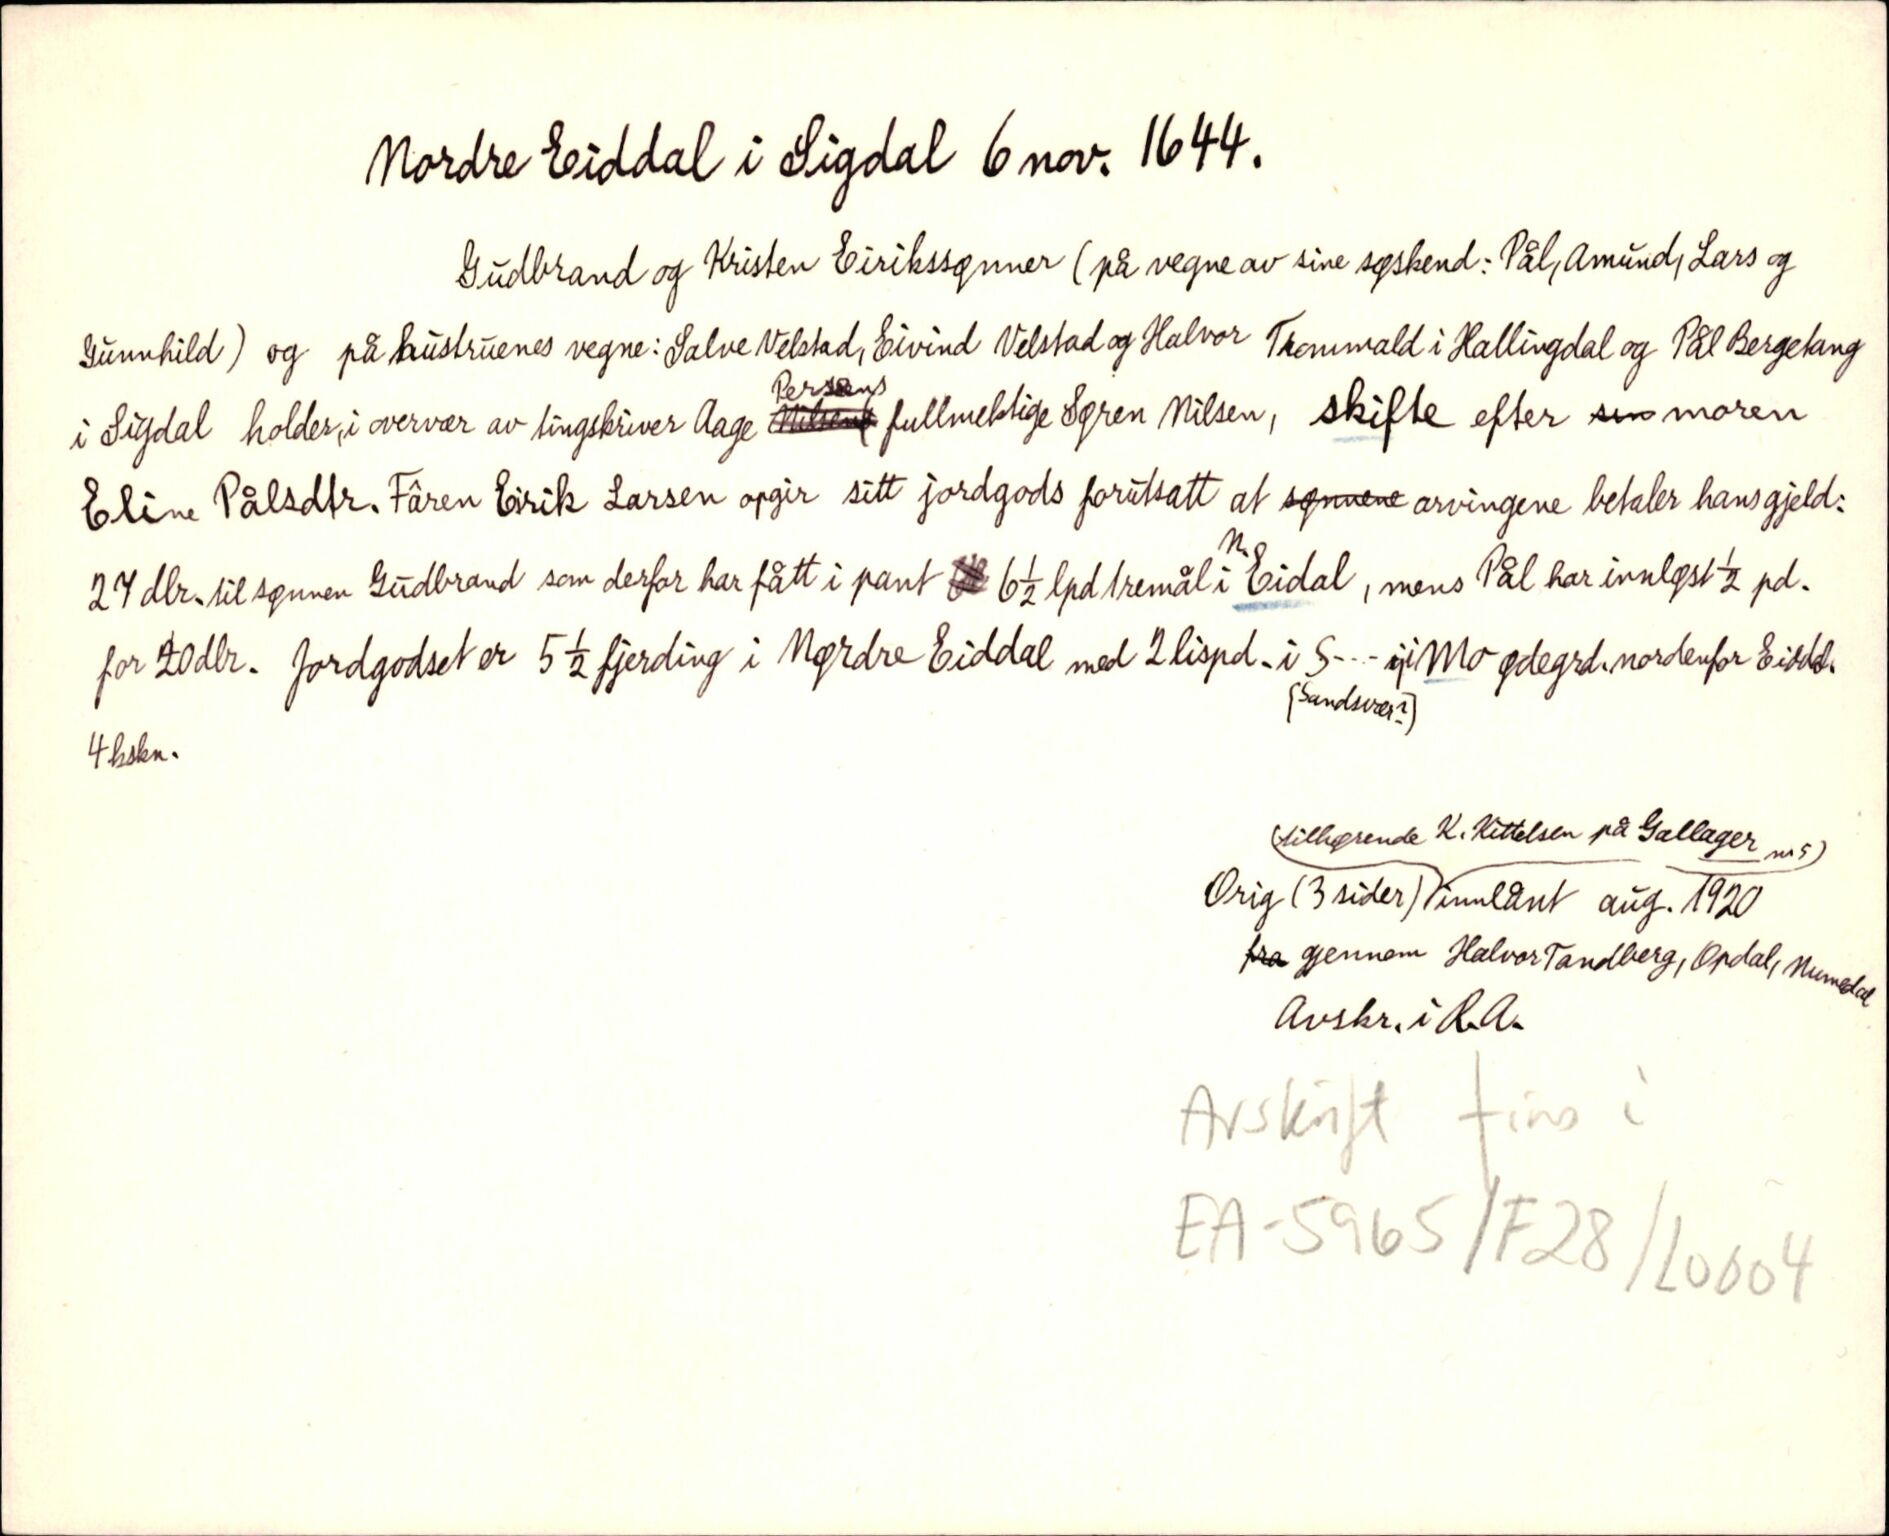 Nordre Eiddal i Sigdal 6 nov. 1644.
Gudbrand og Kristen Eirikssønner (på vegne av sine søskend: Pål, Amund, Lars og
Gunnhild) og på hustruenes vegne: Salve Velstad, Eivind Velstad og Halvor Trommald i Hallingdal og Pål Bergetang
Persens
i Sigdal holder, i overvær av tingskriver Aage Nilsens fullmektige Søren Nilsen, skifte efter sin moren
Eline Pålsdtr. Fåren Eirik Larsen opgir sitt jordgods forutsatt at sønnene arvingene betaler hans gjeld:
N.
27 dlr. til sønnen Gudbrand som derfor har fått i pant 6½ lpd tremål i Eidal, mens Pål har innløst ½ pd.
for 20 dlr. Jordgodset er 5½ fjerding i Nørdre Eiddal med 2 lispd. i S--- i Mo ødegrd. nordenfor Eiddal.
[Sandsvær?]
4 hskn.
(tilhørende K. Kittelsen på Gallager nr 5)
Orig (3 sider) innlånt aug. 1920
fra gjennem Halvor Tandberg, Opdal, Numedal
Avskr. i R.A.
Avskrift fins i
EA-5965/F28/L0004